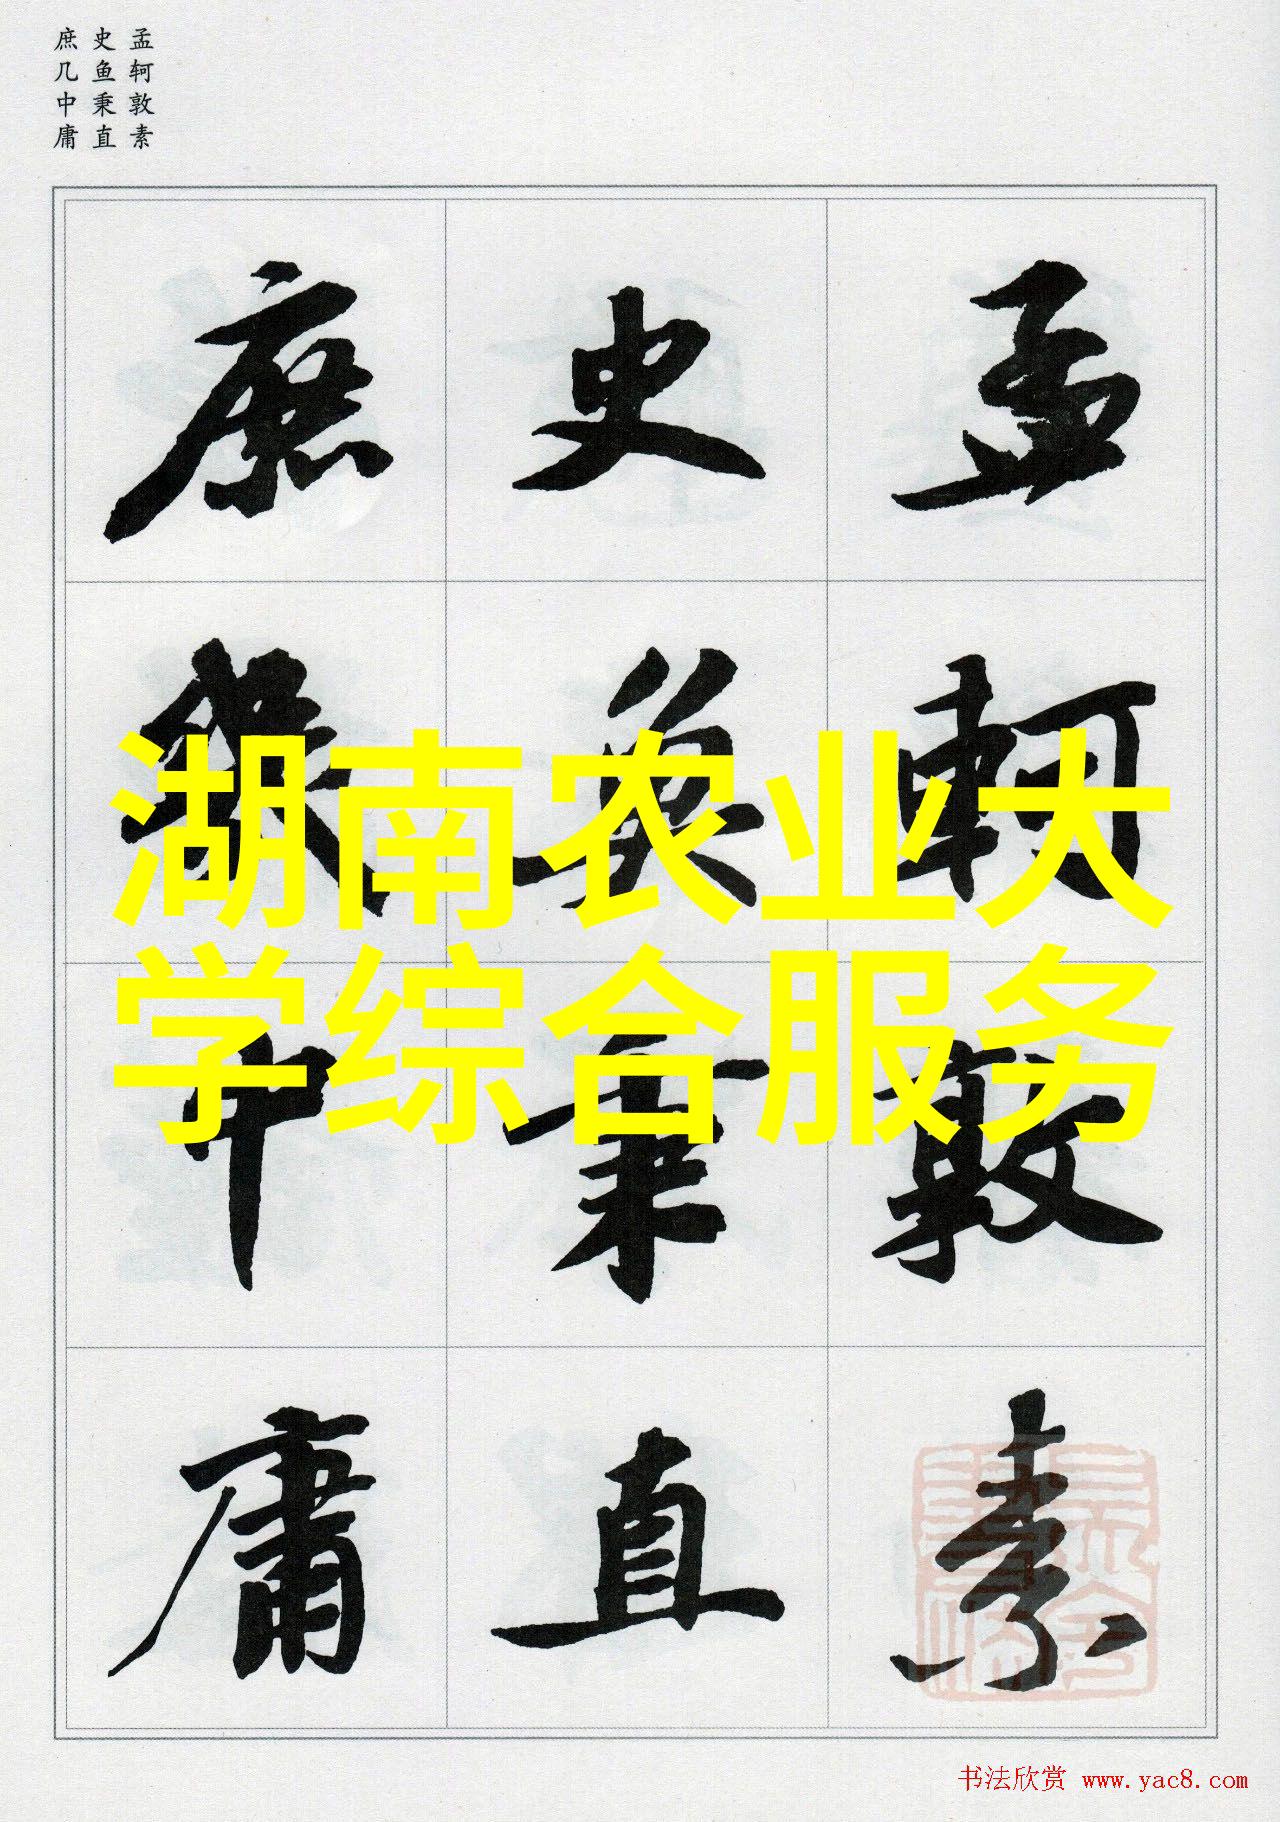 孟轲敦素
史鱼秉直
庶几中庸
孟軻敦素
史魚秉直
庶幾中庸
湖南农业大
学综合服务
书法欣赏 www.yac8.com